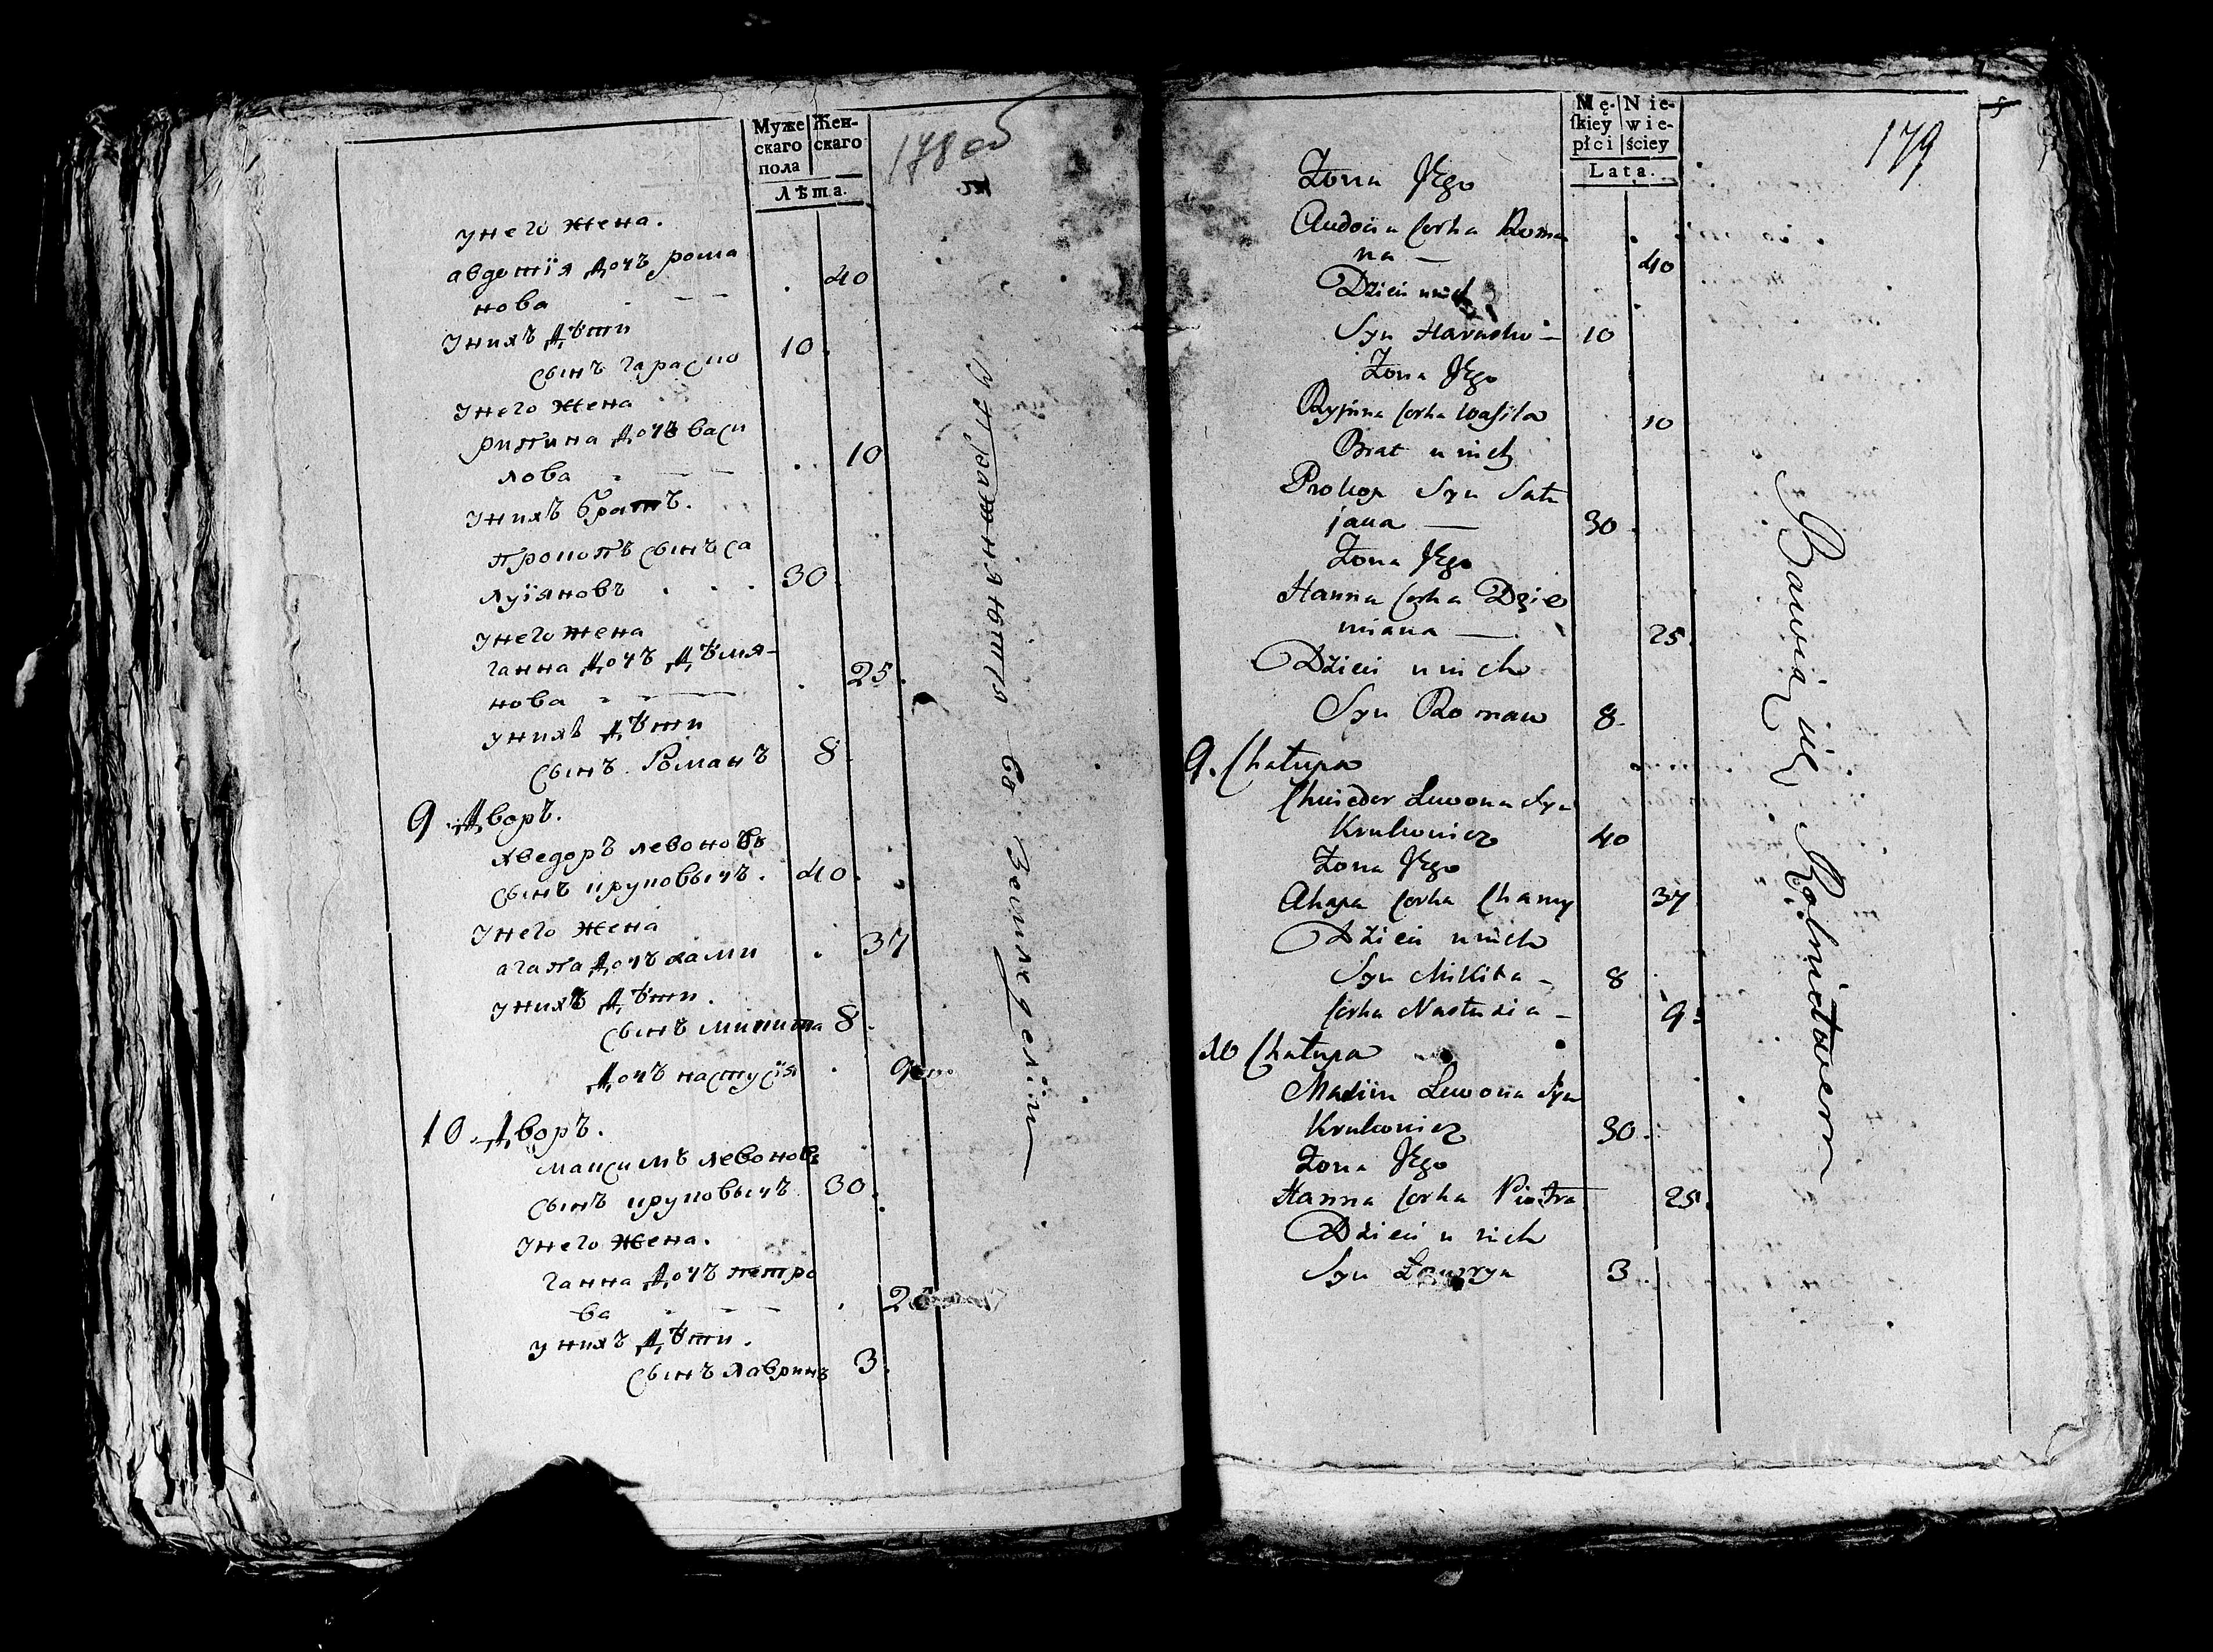 Муже
скаго
пола
Жен-
скаго
Лѣта.
178 об
унего жена.
авдотія дочъ рома
нова 40
унихъ дѣти
сынъ гарасио 10
унего жена
рипина дочъ васи
лова 10
унихъ братъ.
прокопъ сынъ са
луіяновъ 30
унего жена
ганна дочъ дѣмя-
нова 25
унихъ дѣти
сынъ Романъ 8
9 дворъ.
хведоръ левоновъ
сынъ круковычъ. 40
унего жена
агапа дочъ хами 37
унихъ дѣти.
сынъ микита 8
дочъ настусія 9
10 дворъ.
максимъ левоновъ
сынъ круковычъ 30
унего жена.
ганна дочъ петро
ва
унихъ дѣти.
сынъ лавринъ 3
упражняютъ въ земледеліи
Mę-
skiey
płci
Nie-
wie-
ściey
Lata.
179
Żona Jego
Audocia Corka Roma
na — 40
Dzieci unich
Syn Harasko — 10
Żona Jego
Rypina Corka Wasila 10
Brat unich
Prokop Syn Satu
jana — 30
Żona Jego
Hanna Corka Dzie
miana — 25
Dzieci unich
Syn Roman 8
9. Chałupa
Chwiedor Lewona Syn
Krukowicz 40
Żona Jego
Ahapa Corka Chamy 37
Dzieci unich
Syn Mikita — 8
Corka Nastusia — 9
10 Chałupa
Maxim Lewona Syn
Krukowicz 30
Żona Jego
Hanna Corka Piotra 25
Dzieci unich
Syn Ławryn 3
Bawią się Rolnictwem